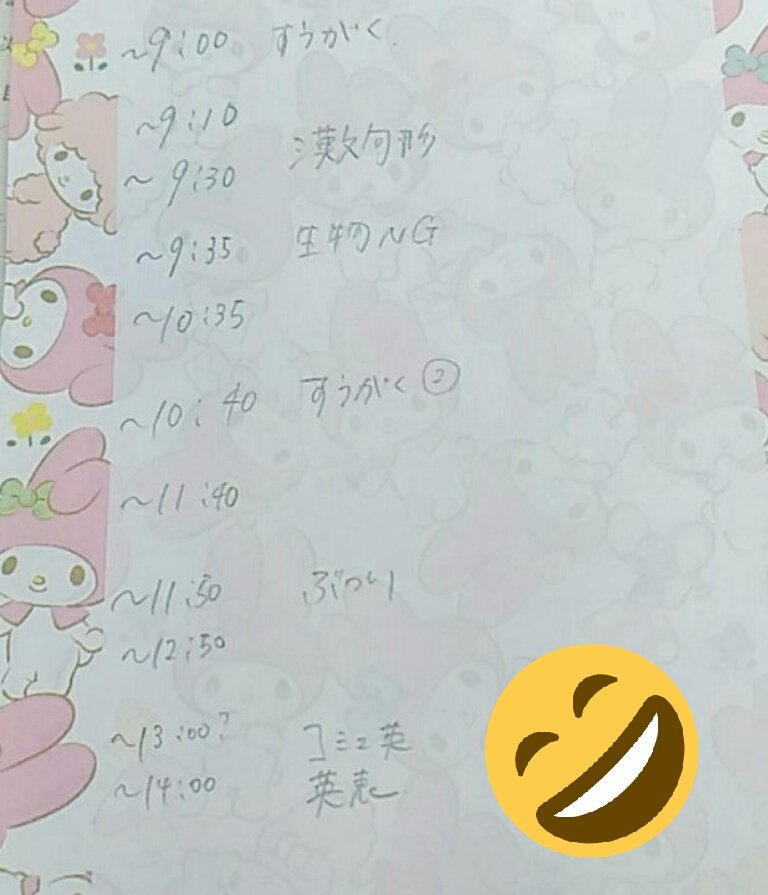 ~9:00 すうがく.
~9:10
漢文句形
~9:30
~9:35 生物NG
~10:35
~10:40 すうがく②
~11:40
~11:50 ぶつり
~12:50
~13:00? コミュ英
~14:00 英表